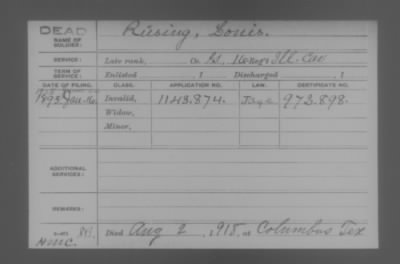 DEAD Rüsing, Louis.
NAME OF SOLDIER:
SERVICE: Late rank, Co. Ill. Cav
TERM OF SERVICE: Enlisted , 1 Discharged , 1
DATE OF FILING. CLASS. APPLICATION NO. LAW. CERTIFICATE NO.
1895 Jan. Invalid, 1143.874. 973.898.
Widow,
Minor,
ADDITIONAL SERVICES:
REMARKS:
Died Aug 2, 1915, at Columbus Tex